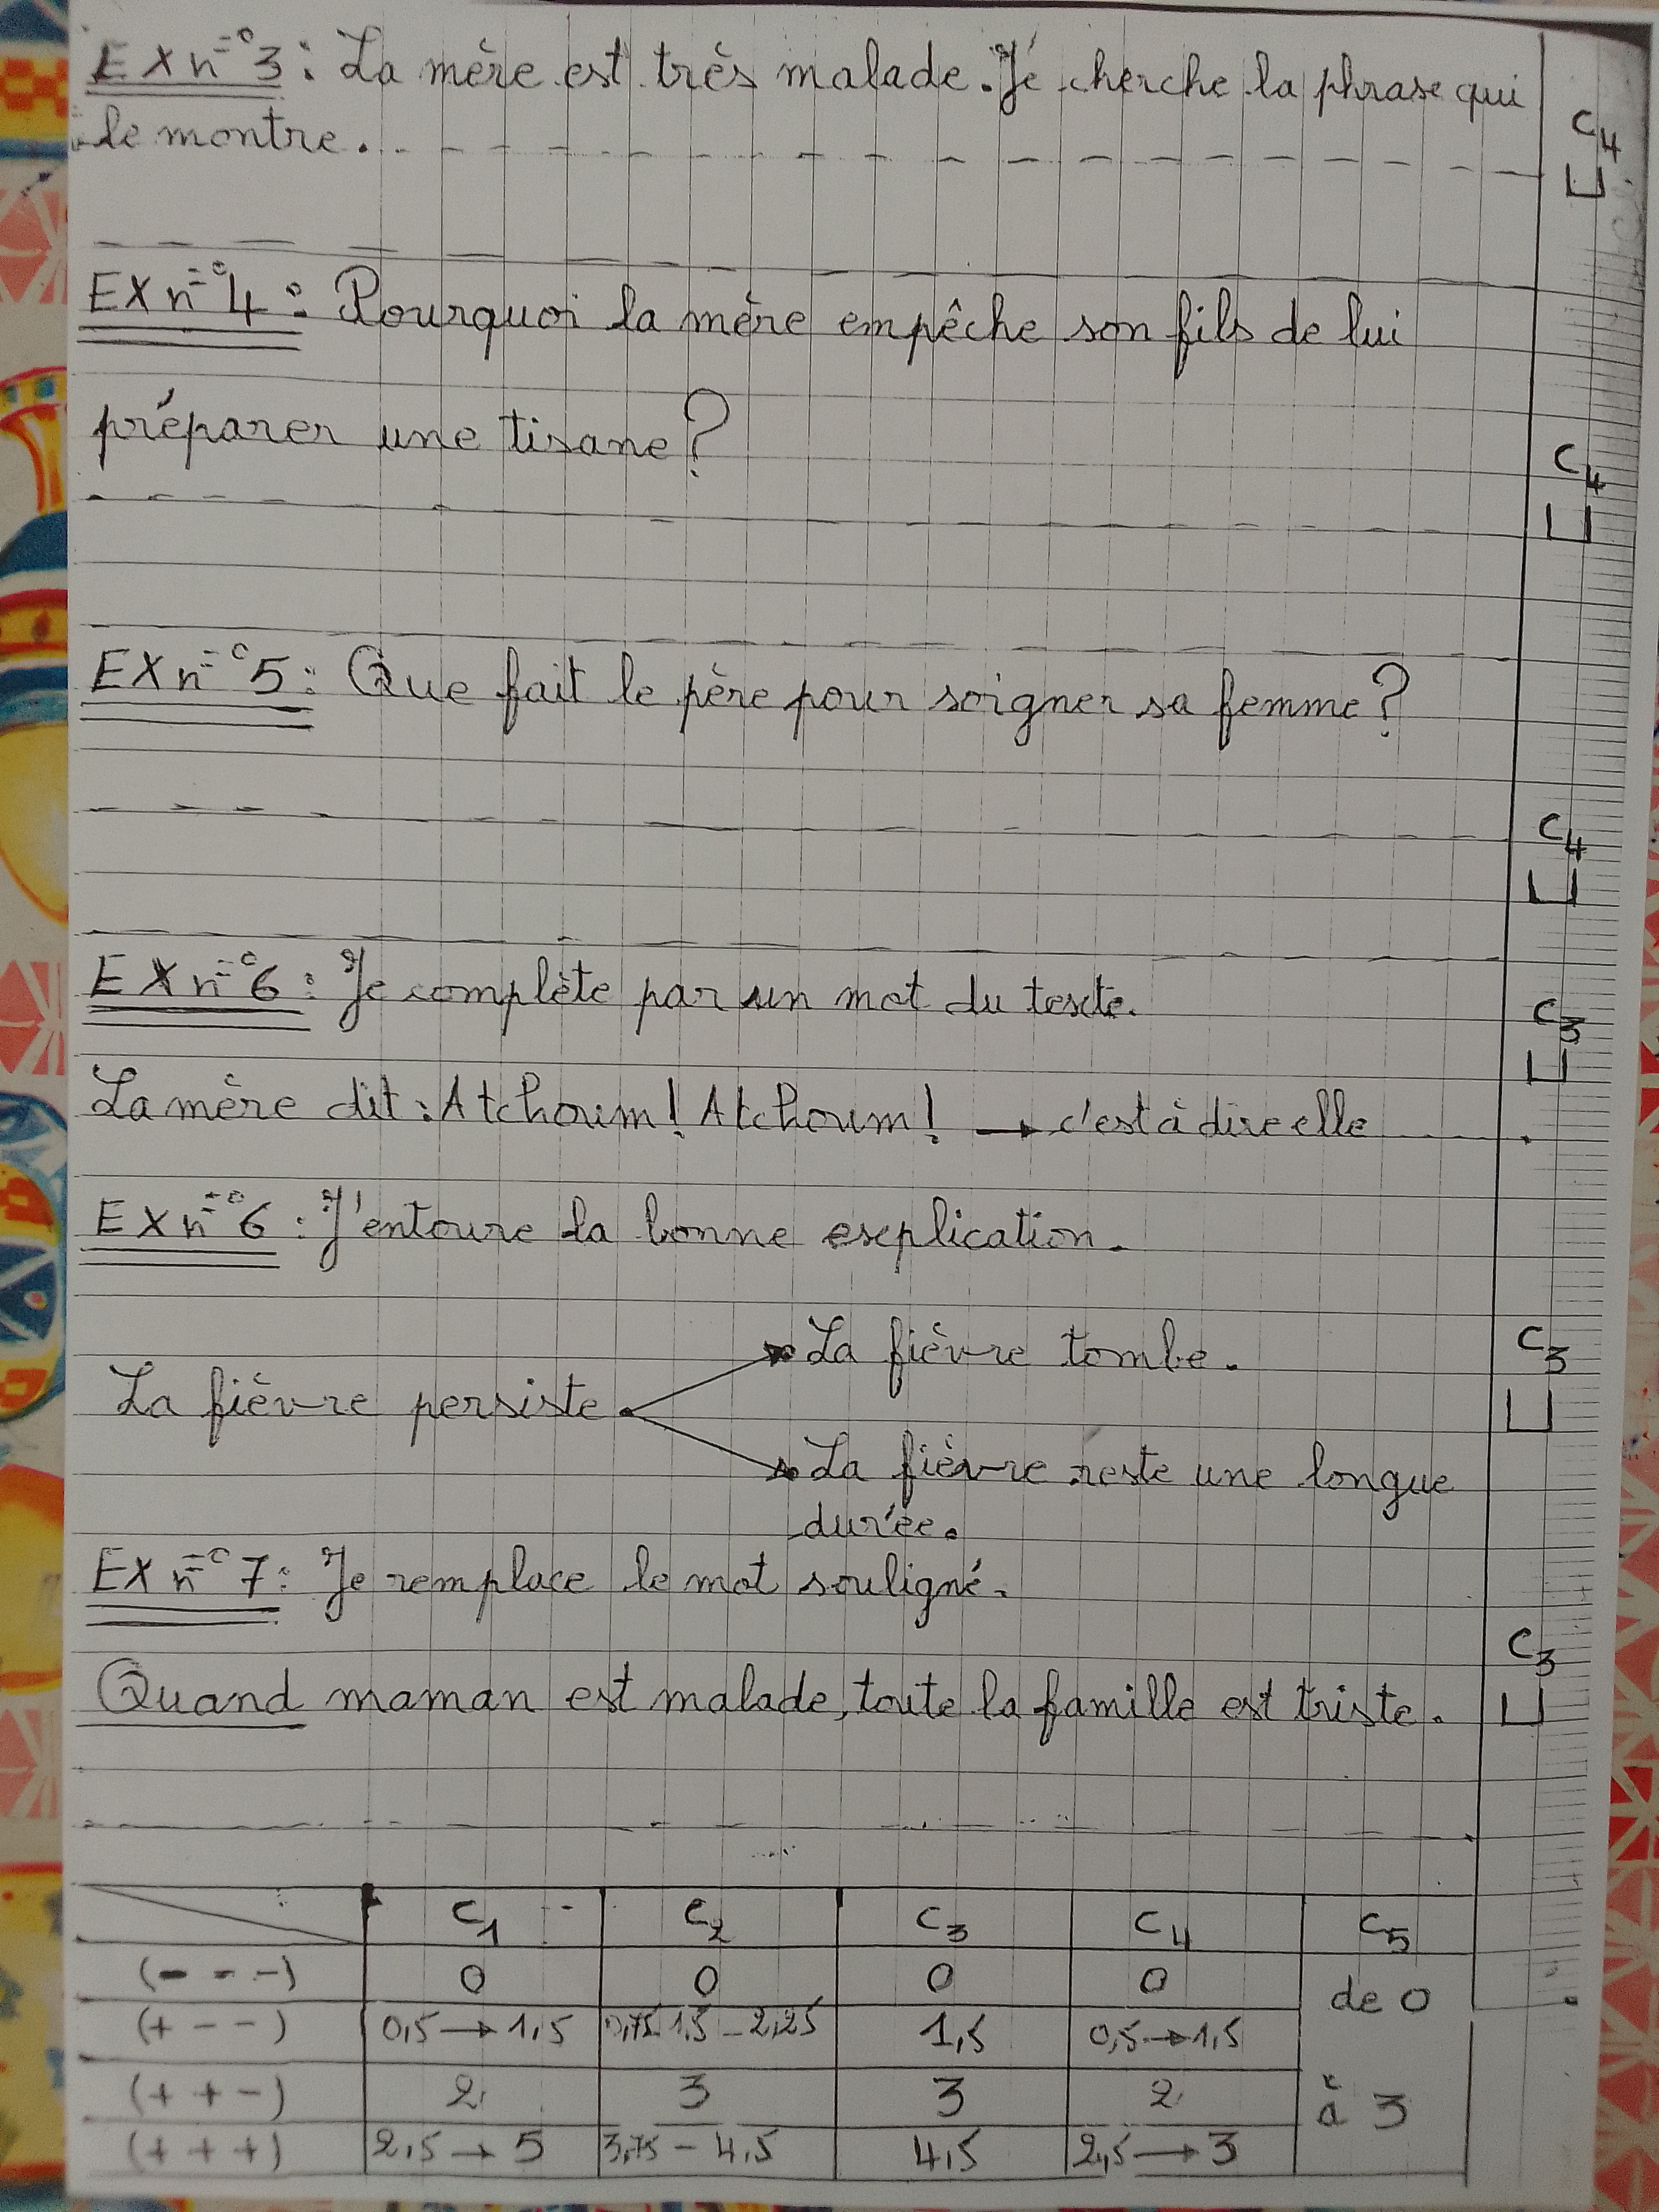 EX n° 3 : La mère est très malade. Je cherche la phrase qui
le montre.
C4
EX n° 4 : Pourquoi la mère empêche son fils de lui
préparer une tisane ?
C4
EX n° 5 : Que fait le père pour soigner sa femme ?
C4
EX n° 6 : Je complète par un mot du texte.
C3
La mère dit : Atchoum ! Atchoum ! → c'est à dire elle .
EX n° 6 : J'entoure la bonne explication.
La fièvre tombe.
C3
La fièvre persiste
La fièvre reste une longue
durée.
EX n° 7 : Je remplace le mot souligné.
C3
Quand maman est malade, toute la famille est triste.
C1 C2 C3 C4 C5
(- - -) 0 0 0 0 de 0
(+ - -) 0,5 → 1,5 0,75 1,5 - 2,25 1,5 0,5 → 1,5
(+ + -) 2 3 3 2 à 3
(+ + +) 2,5 → 5 3,75 - 4,5 4,5 2,5 → 3